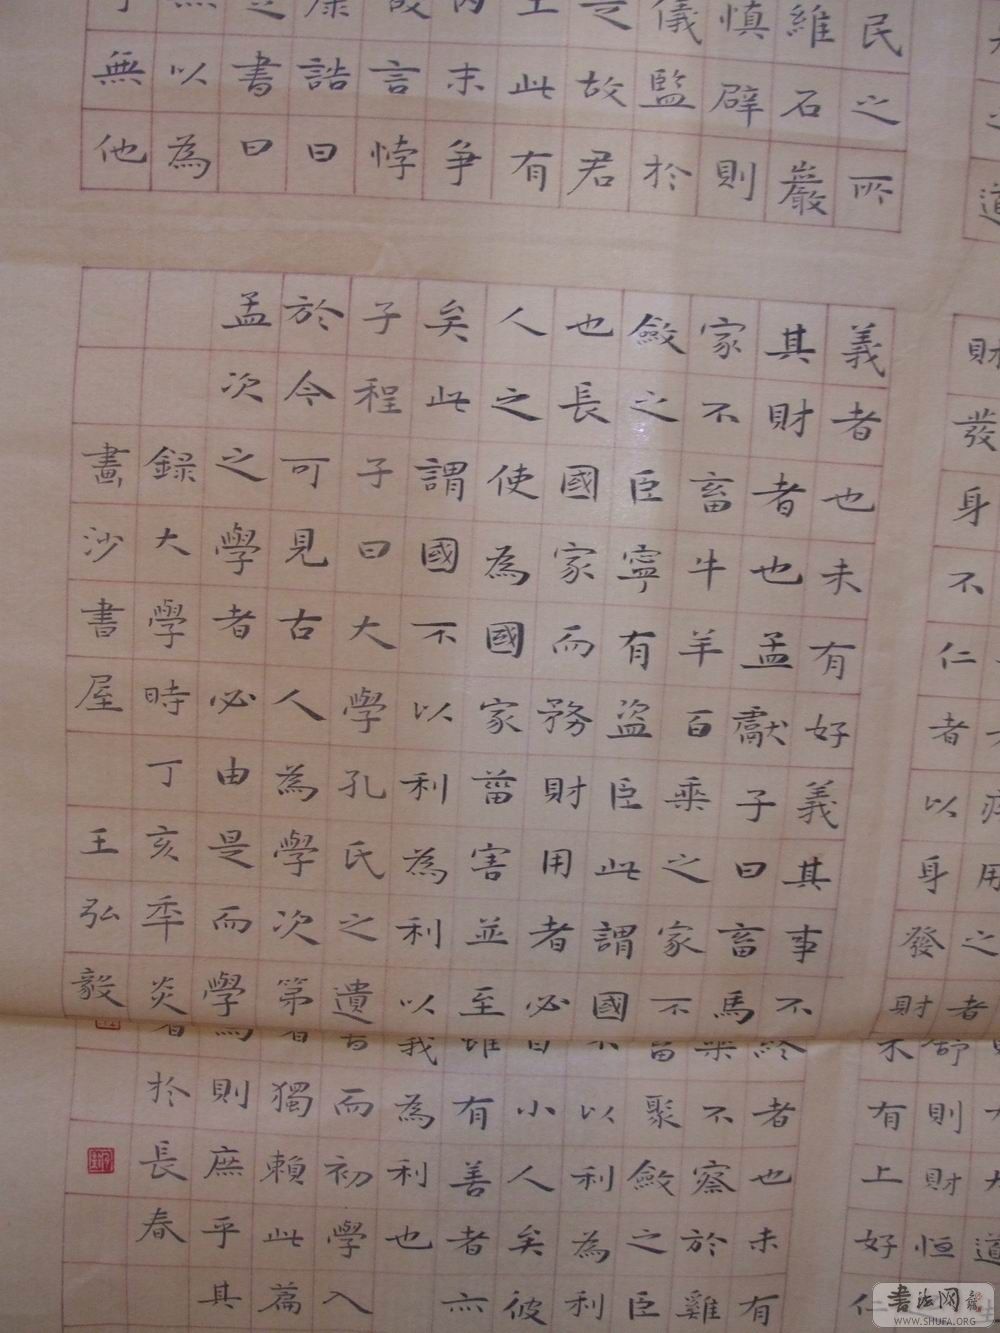 道
民之所
維石巖
慎辟則
儀監於
是故君
此有
內末爭
故言悖
康誥曰
書曰
無以為
無他
大道
疾用之者舒則財恒
財發身不仁者以身發財未有上好仁
義者也未有好義其事不終者也未有
其財者也孟獻子曰畜馬乘不察於雞
家不畜牛羊百乘之家不畜聚斂之臣
斂之臣寧有盜臣此謂國不以利為利
也長國家而務財用者必自小人矣彼
人之使為國家菑害並至雖有善者亦
矣此謂國不以利為利以義為利也
子程子曰大學孔氏之遺書而初學入
於今可見古人為學次第者獨賴此篇
孟次之學者必由是而學焉則庶乎其
錄大學時丁亥年炎暑於長春
畫沙書屋 王弘毅
書法网
WWW.SHUFA.ORG